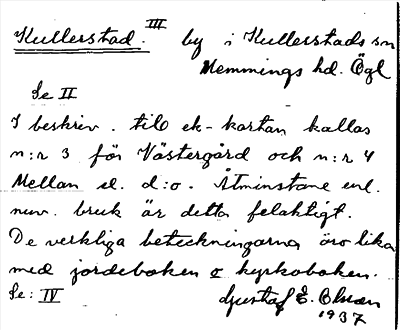 Kullerstad. III by i Kullerstads sn
Memmings hd. Ögl
Se II
I beskriv. till ek-kartan kallas
n:r 3 för Västergård och n:r 4
Mellan el. d:o. Åtminstone enl.
nuv. bruk är detta felaktigt.
De verkliga beteckningarna äro lika
med jordeboken o kyrkoboken.
Se: IV Gustaf E. Olsson
1937